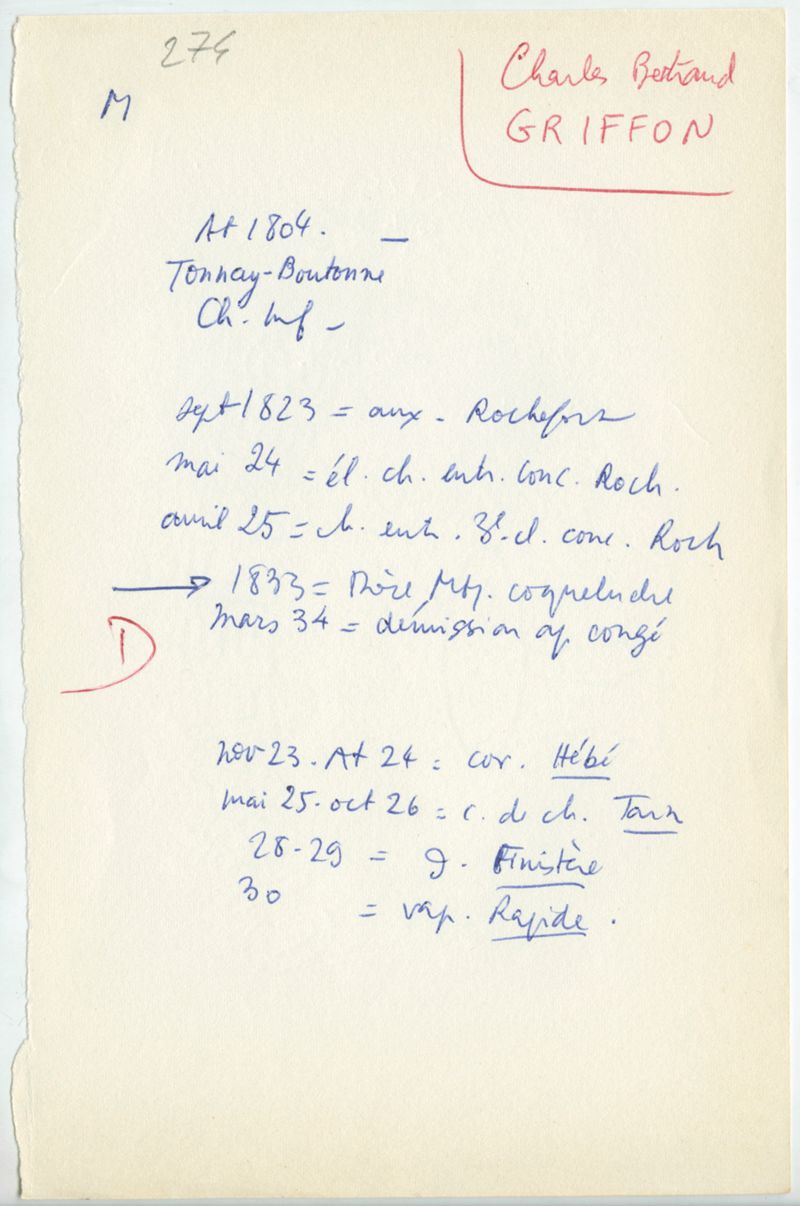 274
M
Charles Bertrand
GRIFFON
At 1804. —
Tonnay-Boutonne
Ch. Inf -
sept 1823 = aux - Rochefort
mai 24 = él. ch. entr. conc. Roch.
avril 25 = ch. entr. 3e. cl. conc. Roch
1833 = Thèse Mtp. coqueluche
mars 34 = démission ap. congé
D
nov 23. At 24 = cor. Hébé
mai 25. oct 26 = c. de ch. Tarn
28-29 = g. Finistère
30 = vap. Rapide.